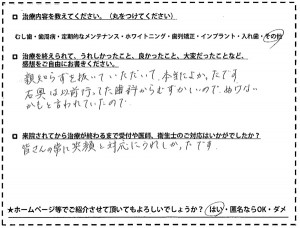 □ 治療内容を教えてください。（丸をつけてください）
むし歯・歯周病・定期的なメンテナンス・ホワイトニング・歯列矯正・インプラント・入れ歯・その他
□ 治療を終えられて、うれしかったこと、良かったこと、大変だったことなど、
感想をご自由にお書きください。
親知らずを抜いていただいて、本当によかったです
右奥は以前行ってた歯科からむずかしいので、ぬけない
かもと言われていたので
□ 来院されてから治療が終わるまで受付や医師、衛生士のご対応はいかがでしたか？
皆さんの常に笑顔と対応にうれしかったです。
★ホームページ等でご紹介させて頂いてもよろしいでしょうか？ はい・匿名ならOK・ダメ